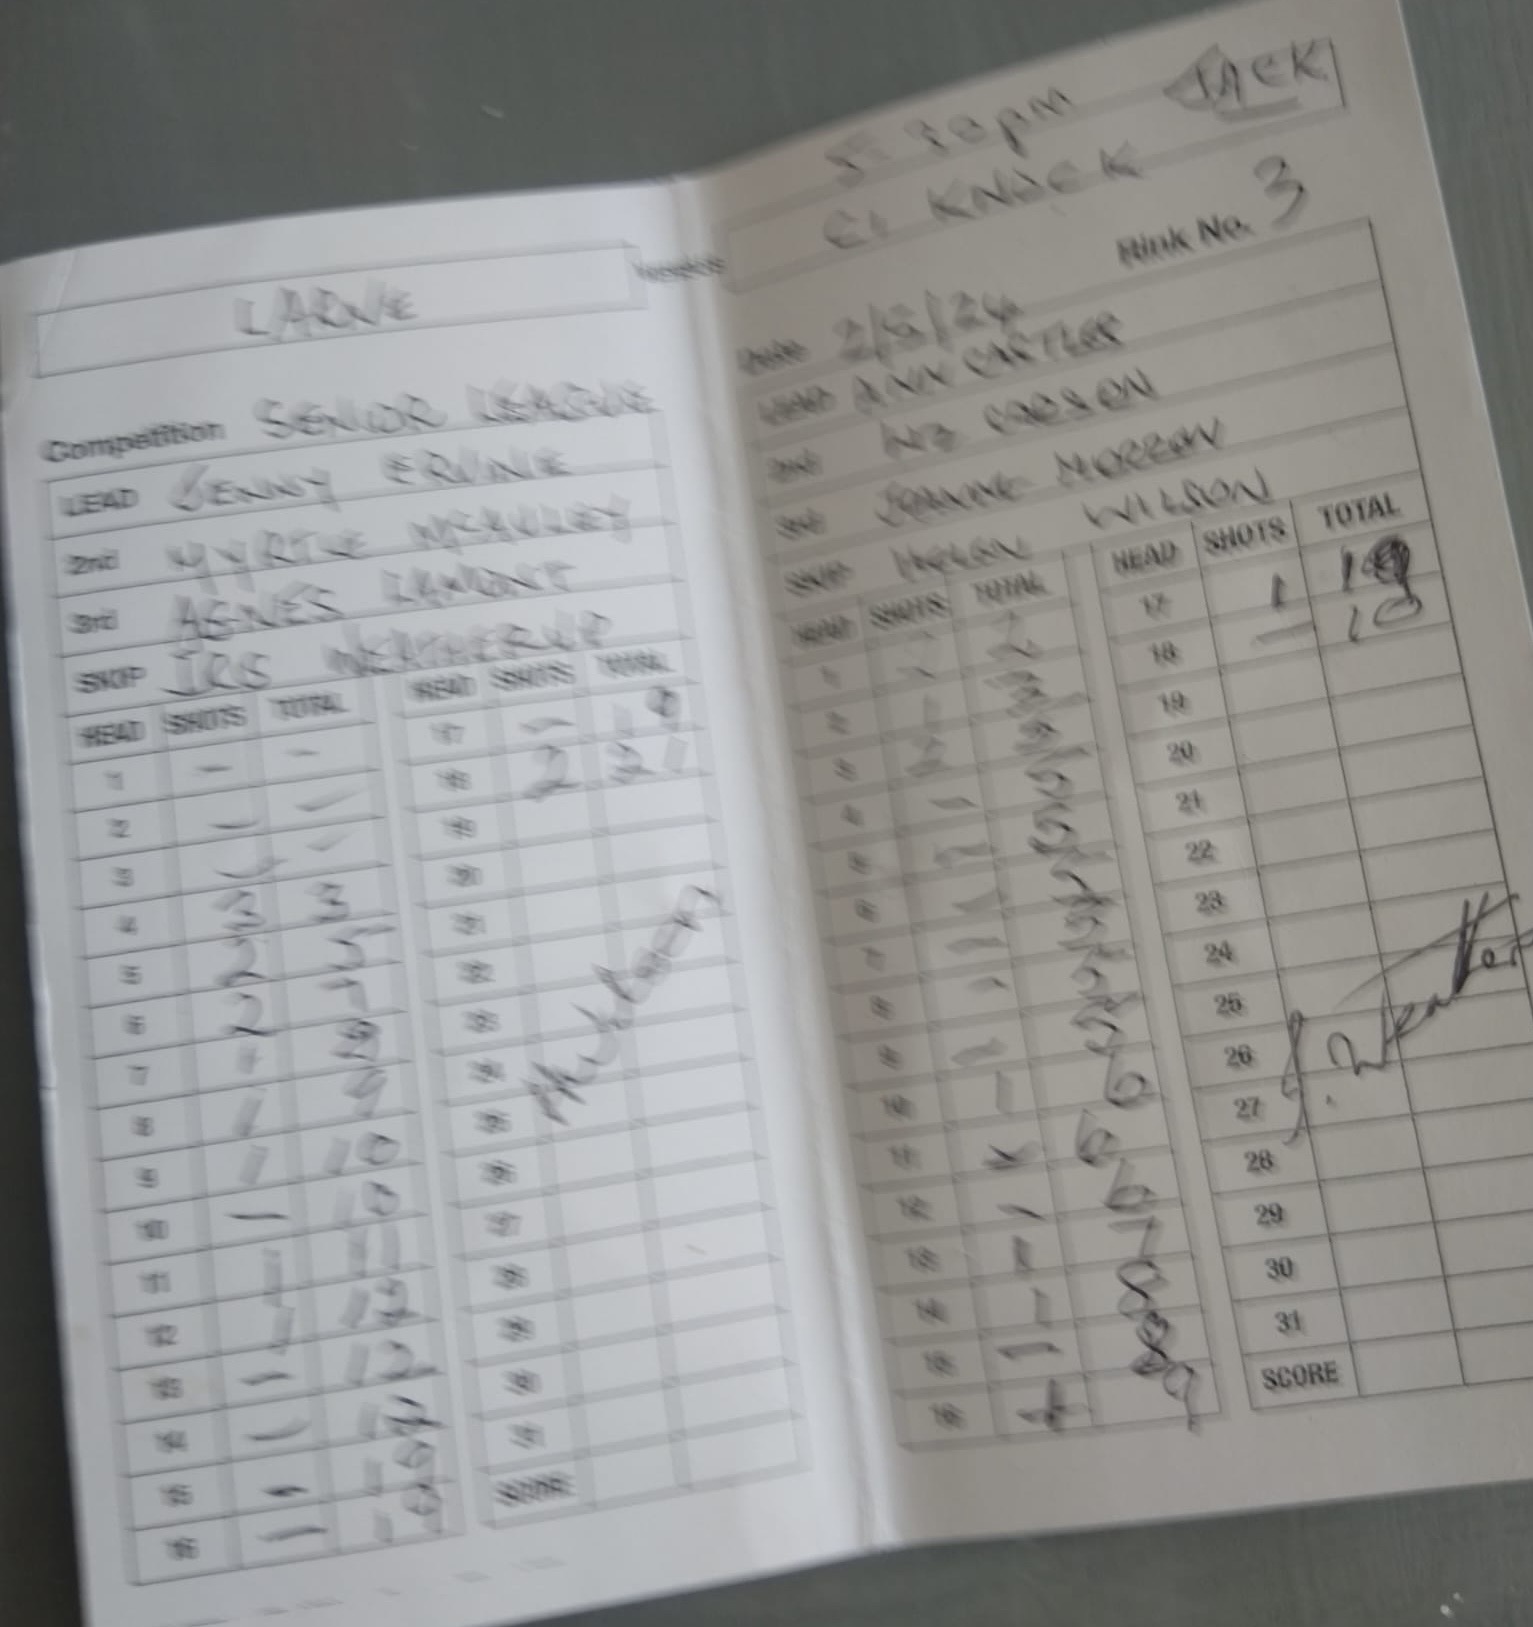 LARNE
Competition SENIOR LEAGUE
LEAD JENNY ERVINE
2nd MYRTLE McAULEY
3rd AGNES LAMONT
SKIP
HEAD SHOTS TOTAL HEAD SHOTS TOTAL
1 - - 17 - 19
2 - - 18 2 21
3 - - 19
4 3 3 20
5 2 5 21
6 2 7 22
7 1 8 23
8 1 9 24
9 1 10 25
10 - 10 26
11 1 11 27
12 1 12 28
13 - 12 29
14 - 30
15 - 31
16 - 19 SCORE
5:30pm JACK
KNOCK
Rink No. 3
Date 2/5/24
LEAD ANN CASTLES
2nd CARSON
3rd JOANNE
SKIP HELEN WILSON
HEAD SHOTS TOTAL HEAD SHOTS TOTAL
1 2 17 1 10
2 1 3 18 - 10
3 2 5 19
4 - 5 20
5 - 5 21
6 - 5 22
7 - 5 23
8 - 5 24
9 - 5 25
10 1 6 26
11 6 27
12 - 6 28
13 1 7 29
14 1 8 30
15 - 8 31
16 1 9 SCORE